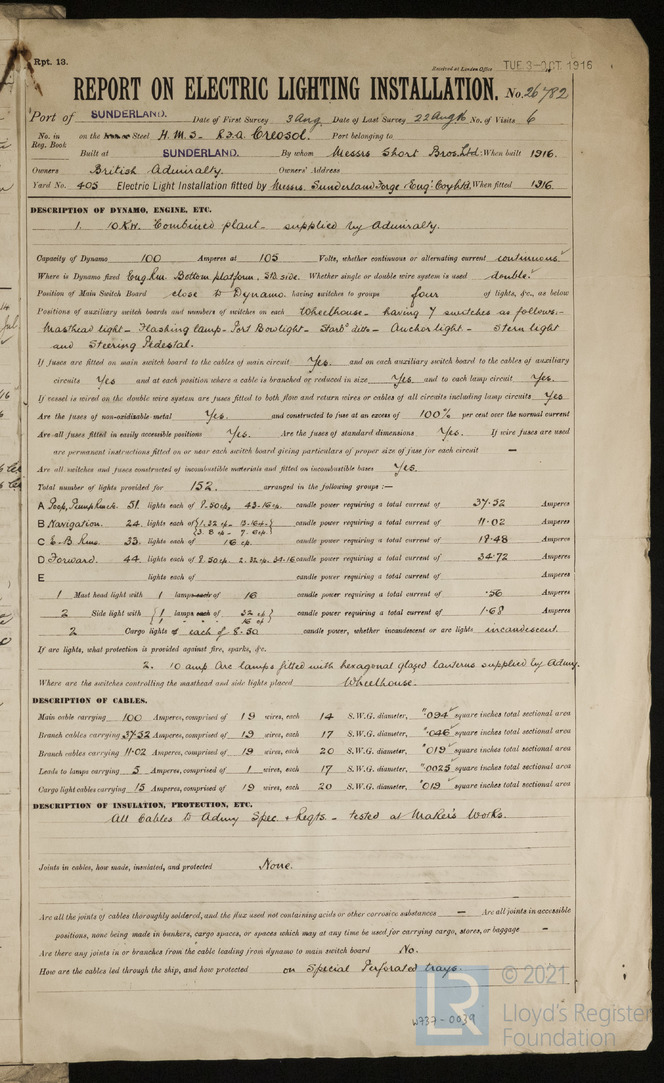 Rpt. 13.
Received at London Office TUE 3-OCT 1916
REPORT ON ELECTRIC LIGHTING INSTALLATION. No. 26782
Port of SUNDERLAND. Date of First Survey 3 Aug Date of Last Survey 22 Aug 16 No. of Visits 6
No. in Reg. Book on the Steel H.M.S- R.F.A. Creosol. Port belonging to
Built at SUNDERLAND. By whom Messrs Short Bros. Ltd. When built 1916.
Owners British Admiralty. Owners' Address
Yard No. 405 Electric Light Installation fitted by Messrs. Sunderland Forge & Eng. Coy Ltd. When fitted 1916.
DESCRIPTION OF DYNAMO, ENGINE, ETC.
1. 10 K.W. Combined plant - supplied by Admiralty.
Capacity of Dynamo 100 Amperes at 105 Volts, whether continuous or alternating current continuous
Where is Dynamo fixed Eng. Rm. Bottom platform. SB. side. Whether single or double wire system is used double.
Position of Main Switch Board close to Dynamo. having switches to groups four of lights, &c., as below
Positions of auxiliary switch boards and numbers of switches on each Wheelhouse - having 7 switches as follows:-
Masthead light - Flashing lamp - Port Bow light - Starb'd ditto - Anchor light - Stern light
and Steering Pedestal.
If fuses are fitted on main switch board to the cables of main circuit Yes. and on each auxiliary switch board to the cables of auxiliary
circuits Yes and at each position where a cable is branched or reduced in size Yes. and to each lamp circuit Yes.
If vessel is wired on the double wire system are fuses fitted to both flow and return wires or cables of all circuits including lamp circuits Yes
Are the fuses of non-oxidizable metal Yes. and constructed to fuse at an excess of 100% per cent over the normal current
Are all fuses fitted in easily accessible positions Yes. Are the fuses of standard dimensions Yes. If wire fuses are used
are permanent instructions fitted on or near each switch board giving particulars of proper size of fuse for each circuit —
Are all switches and fuses constructed of incombustible materials and fitted on incombustible bases Yes.
Total number of lights provided for 152. arranged in the following groups :—
A Poop, Pump Rm &c. 51. lights each of 8.50 cp. 43.16 cp. candle power requiring a total current of 37.52 Amperes
B Navigation. 24. lights each of {1.32 cp - 13.16 cp. - {3. 8 cp - 7. 6 cp} candle power requiring a total current of 11.02 Amperes
C E-B Rms. 33. lights each of 16 cp. candle power requiring a total current of 18.48 Amperes
D Forward. 44. lights each of 8.50 cp. 2.32 cp. 34.16 candle power requiring a total current of 34.72 Amperes
E lights each of candle power requiring a total current of Amperes
1 Mast head light with 1 lamp each of 16 candle power requiring a total current of .56 Amperes
2 Side light with {1 lamps each of 32 cp} candle power requiring a total current of 1.68 Amperes
{1 " " " 16 cp}
2 Cargo lights of each of 8.50 candle power, whether incandescent or arc lights incandescent.
If arc lights, what protection is provided against fire, sparks, &c.
2. 10 amp Arc lamps fitted with hexagonal glazed lanterns supplied by Admy.
Where are the switches controlling the masthead and side lights placed Wheelhouse.
DESCRIPTION OF CABLES.
Main cable carrying 100 Amperes, comprised of 19 wires, each 14 S.W.G. diameter, .094 square inches total sectional area
Branch cables carrying 37.52 Amperes, comprised of 19 wires, each 17 S.W.G. diameter, .046 square inches total sectional area
Branch cables carrying 11.02 Amperes, comprised of 19 wires, each 20 S.W.G. diameter, .019 square inches total sectional area
Leads to lamps carrying 5 Amperes, comprised of 1 wires, each 17 S.W.G. diameter, .0025 square inches total sectional area
Cargo light cables carrying 15 Amperes, comprised of 19 wires, each 20 S.W.G. diameter, .019 square inches total sectional area
DESCRIPTION OF INSULATION, PROTECTION, ETC.
All Cables to Admy Spec. & Reqts. - tested at Maker's Works.
Joints in cables, how made, insulated, and protected None.
Are all the joints of cables thoroughly soldered, and the flux used not containing acids or other corrosive substances — Are all joints in accessible
positions, none being made in bunkers, cargo spaces, or spaces which may at any time be used for carrying cargo, stores, or baggage —
Are there any joints in or branches from the cable leading from dynamo to main switch board No.
How are the cables led through the ship, and how protected on Special Perforated trays.
W737-0039
LR
© 2021
Lloyd's Register
Foundation